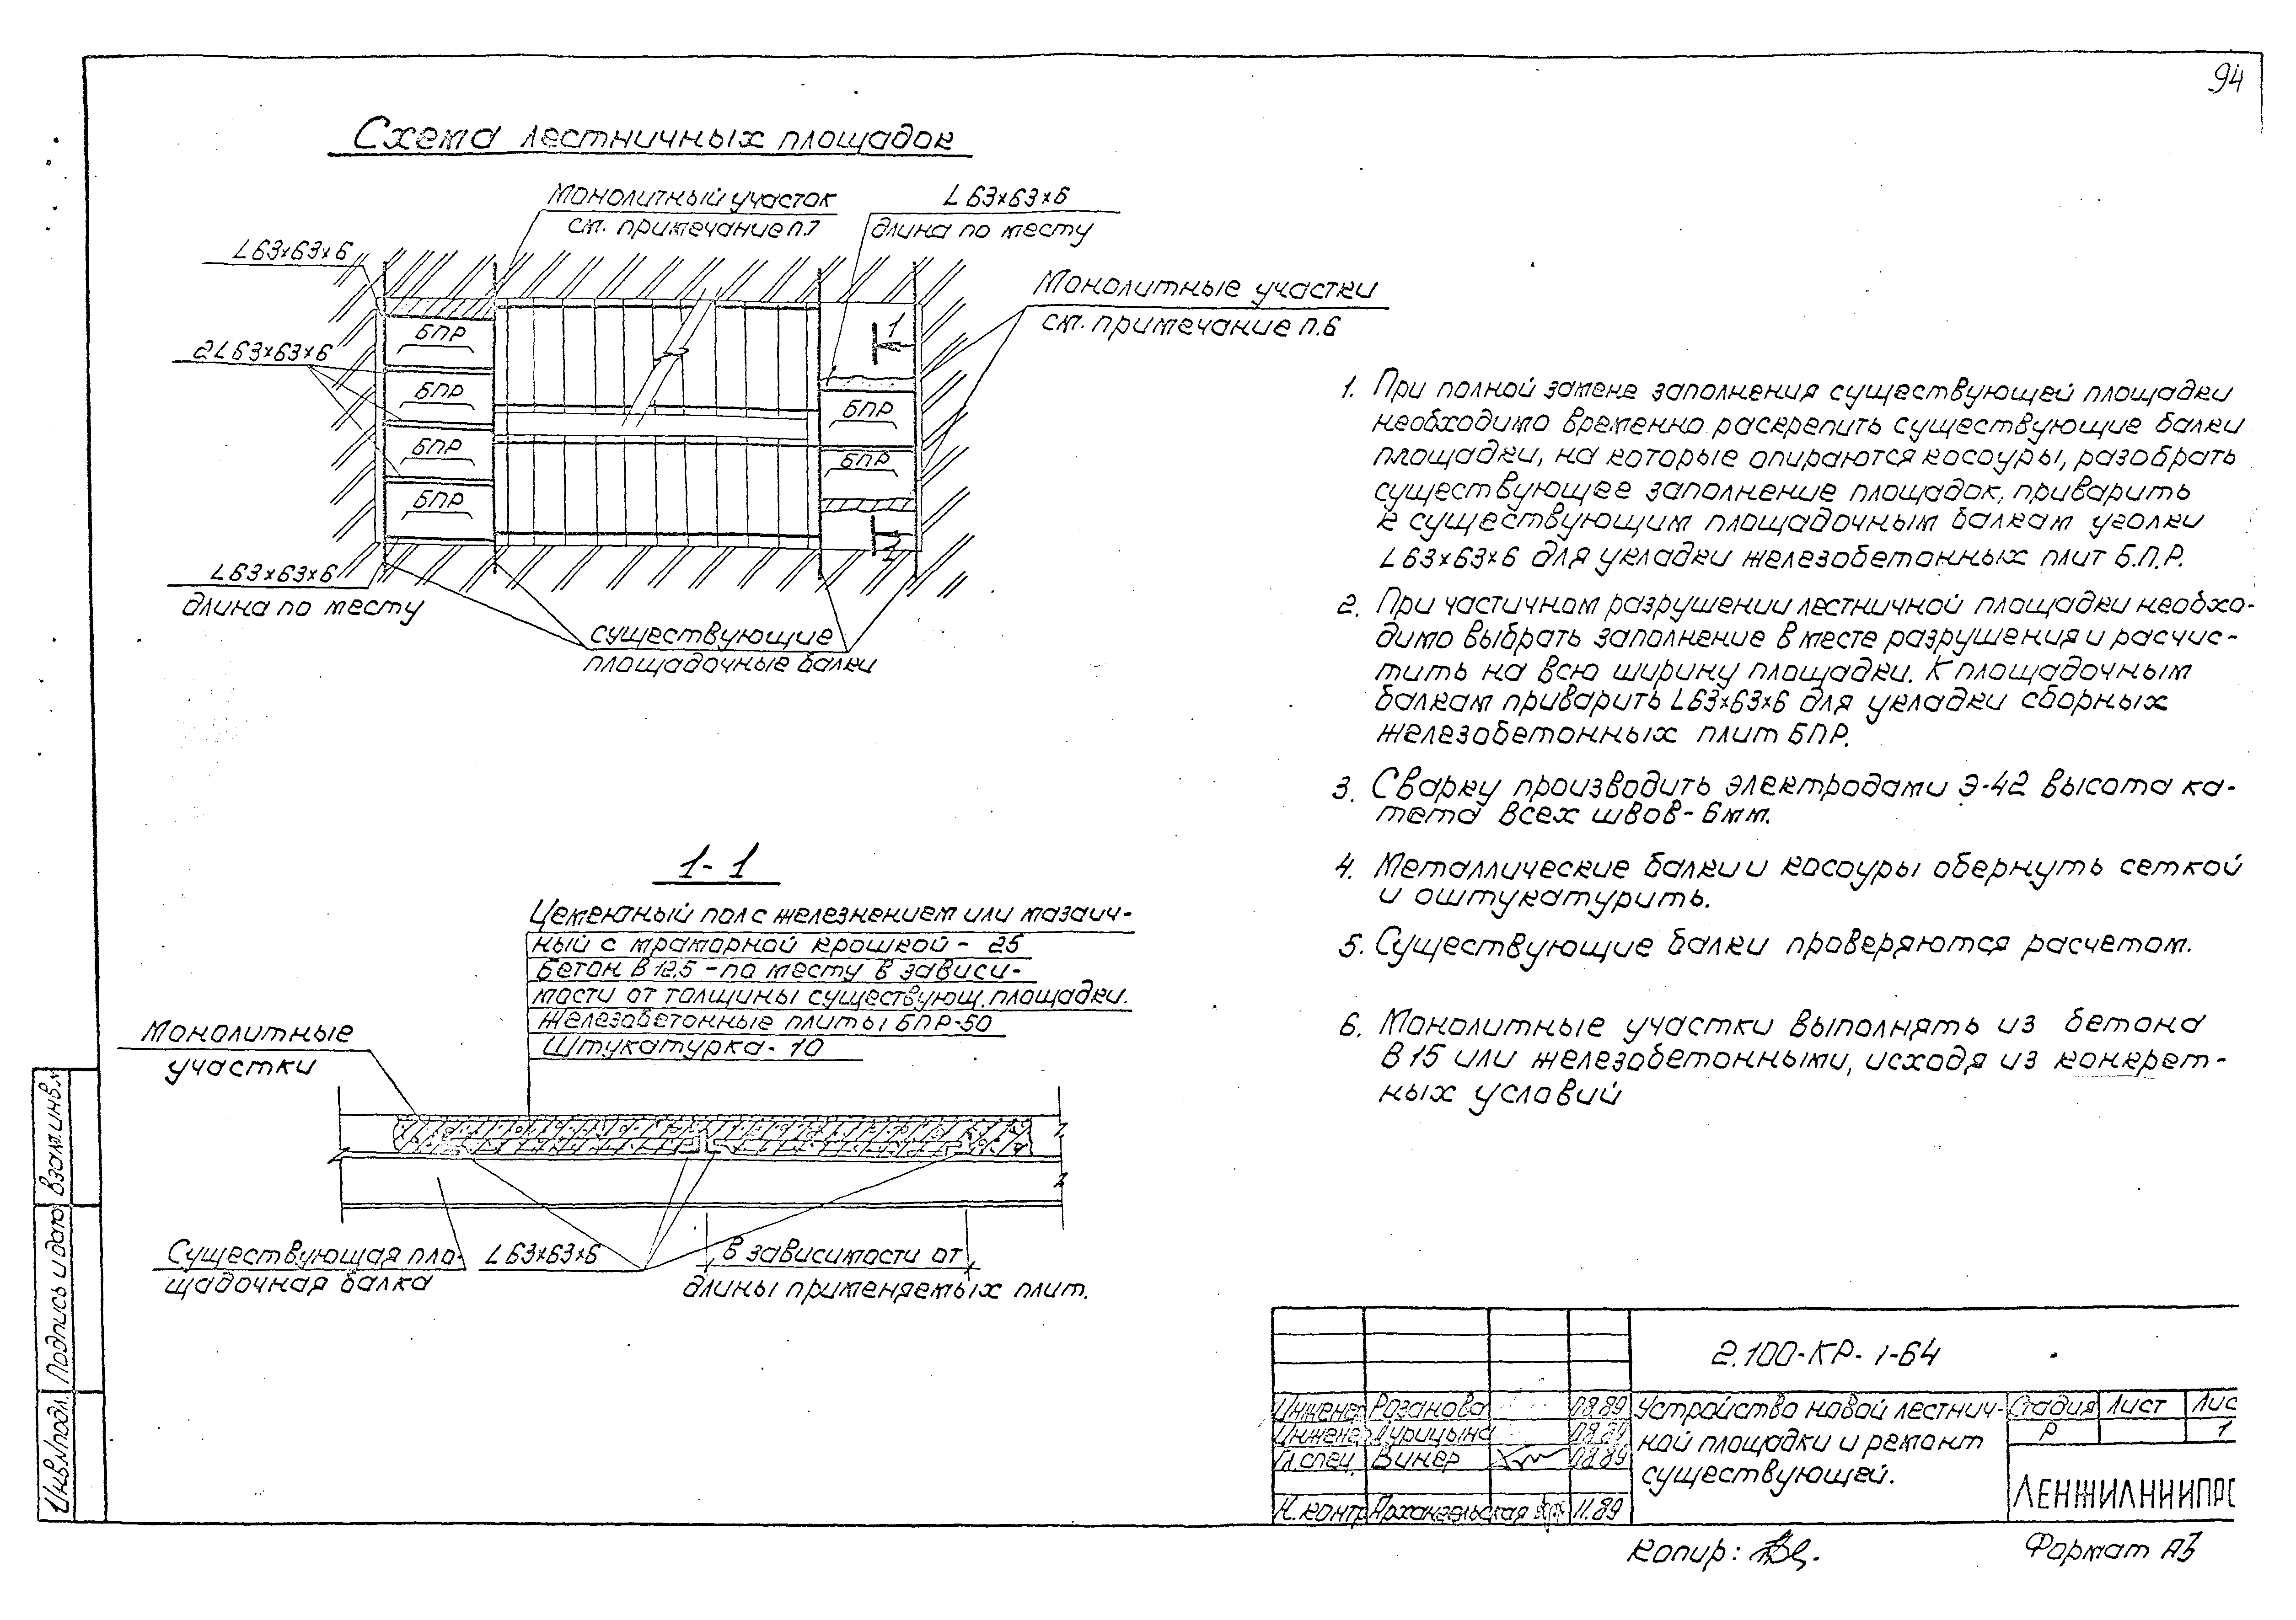 94
Схема лестничных площадок
Монолитный участок
см. примечание п.7
L 63×63×6
длина по месту
L63×63×6
Монолитные участки
см. примечание п.6
2L63×63×6
БПР
БПР
БПР
БПР
БПР
БПР
1
1
L63×63×6
длина по месту
существующие
площадочные балки
1-1
Цементный пол с железнением или мазаич-
ный с мраморной крошкой - 25
Бетон В 12,5 - по месту в зависи-
мости от толщины существующ. площадки.
Железобетонные плиты БПР-50
Штукатурка - 10
Монолитные
участки
Существующая пло-
щадочная балка
L63×63×6
в зависимости от
длины применяемых плит.
1. При полной замене заполнения существующей площадки
необходимо временно раскрепить существующие балки
площадки, на которые опираются косоуры, разобрать
существующее заполнение площадок, приварить
к существующим площадочным балкам уголки
L63×63×6 для укладки железобетонных плит Б.П.Р.
2. При частичном разрушении лестничной площадки необхо-
димо выбрать заполнение в месте разрушения и расчис-
тить на всю ширину площадки. К площадочным
балкам приварить L63×63×6 для укладки сборных
железобетонных плит БПР.
3. Сварку производить электродами Э-42 высота ка-
тета всех швов - 6мм.
4. Металлические балки и косоуры обернуть сеткой
и оштукатурить.
5. Существующие балки проверяются расчетом.
6. Монолитные участки выполнять из бетона
В 15 или железобетонными, исходя из конкрет-
ных условий
2.100-КР-1-64
Инженер Розанова 08.89
Инженер Турицына 08.89
Гл.спец. Винер 08.89
Н.контр Архангельская 11.89
Устройство новой лестнич-
ной площадки и ремонт
существующей.
Стадия Лист Лис
Р 1
ЛЕНЖИЛНИИПРО
Копир:
Формат А3
Инв.№подл. Подпись и дата Взам.инв.№